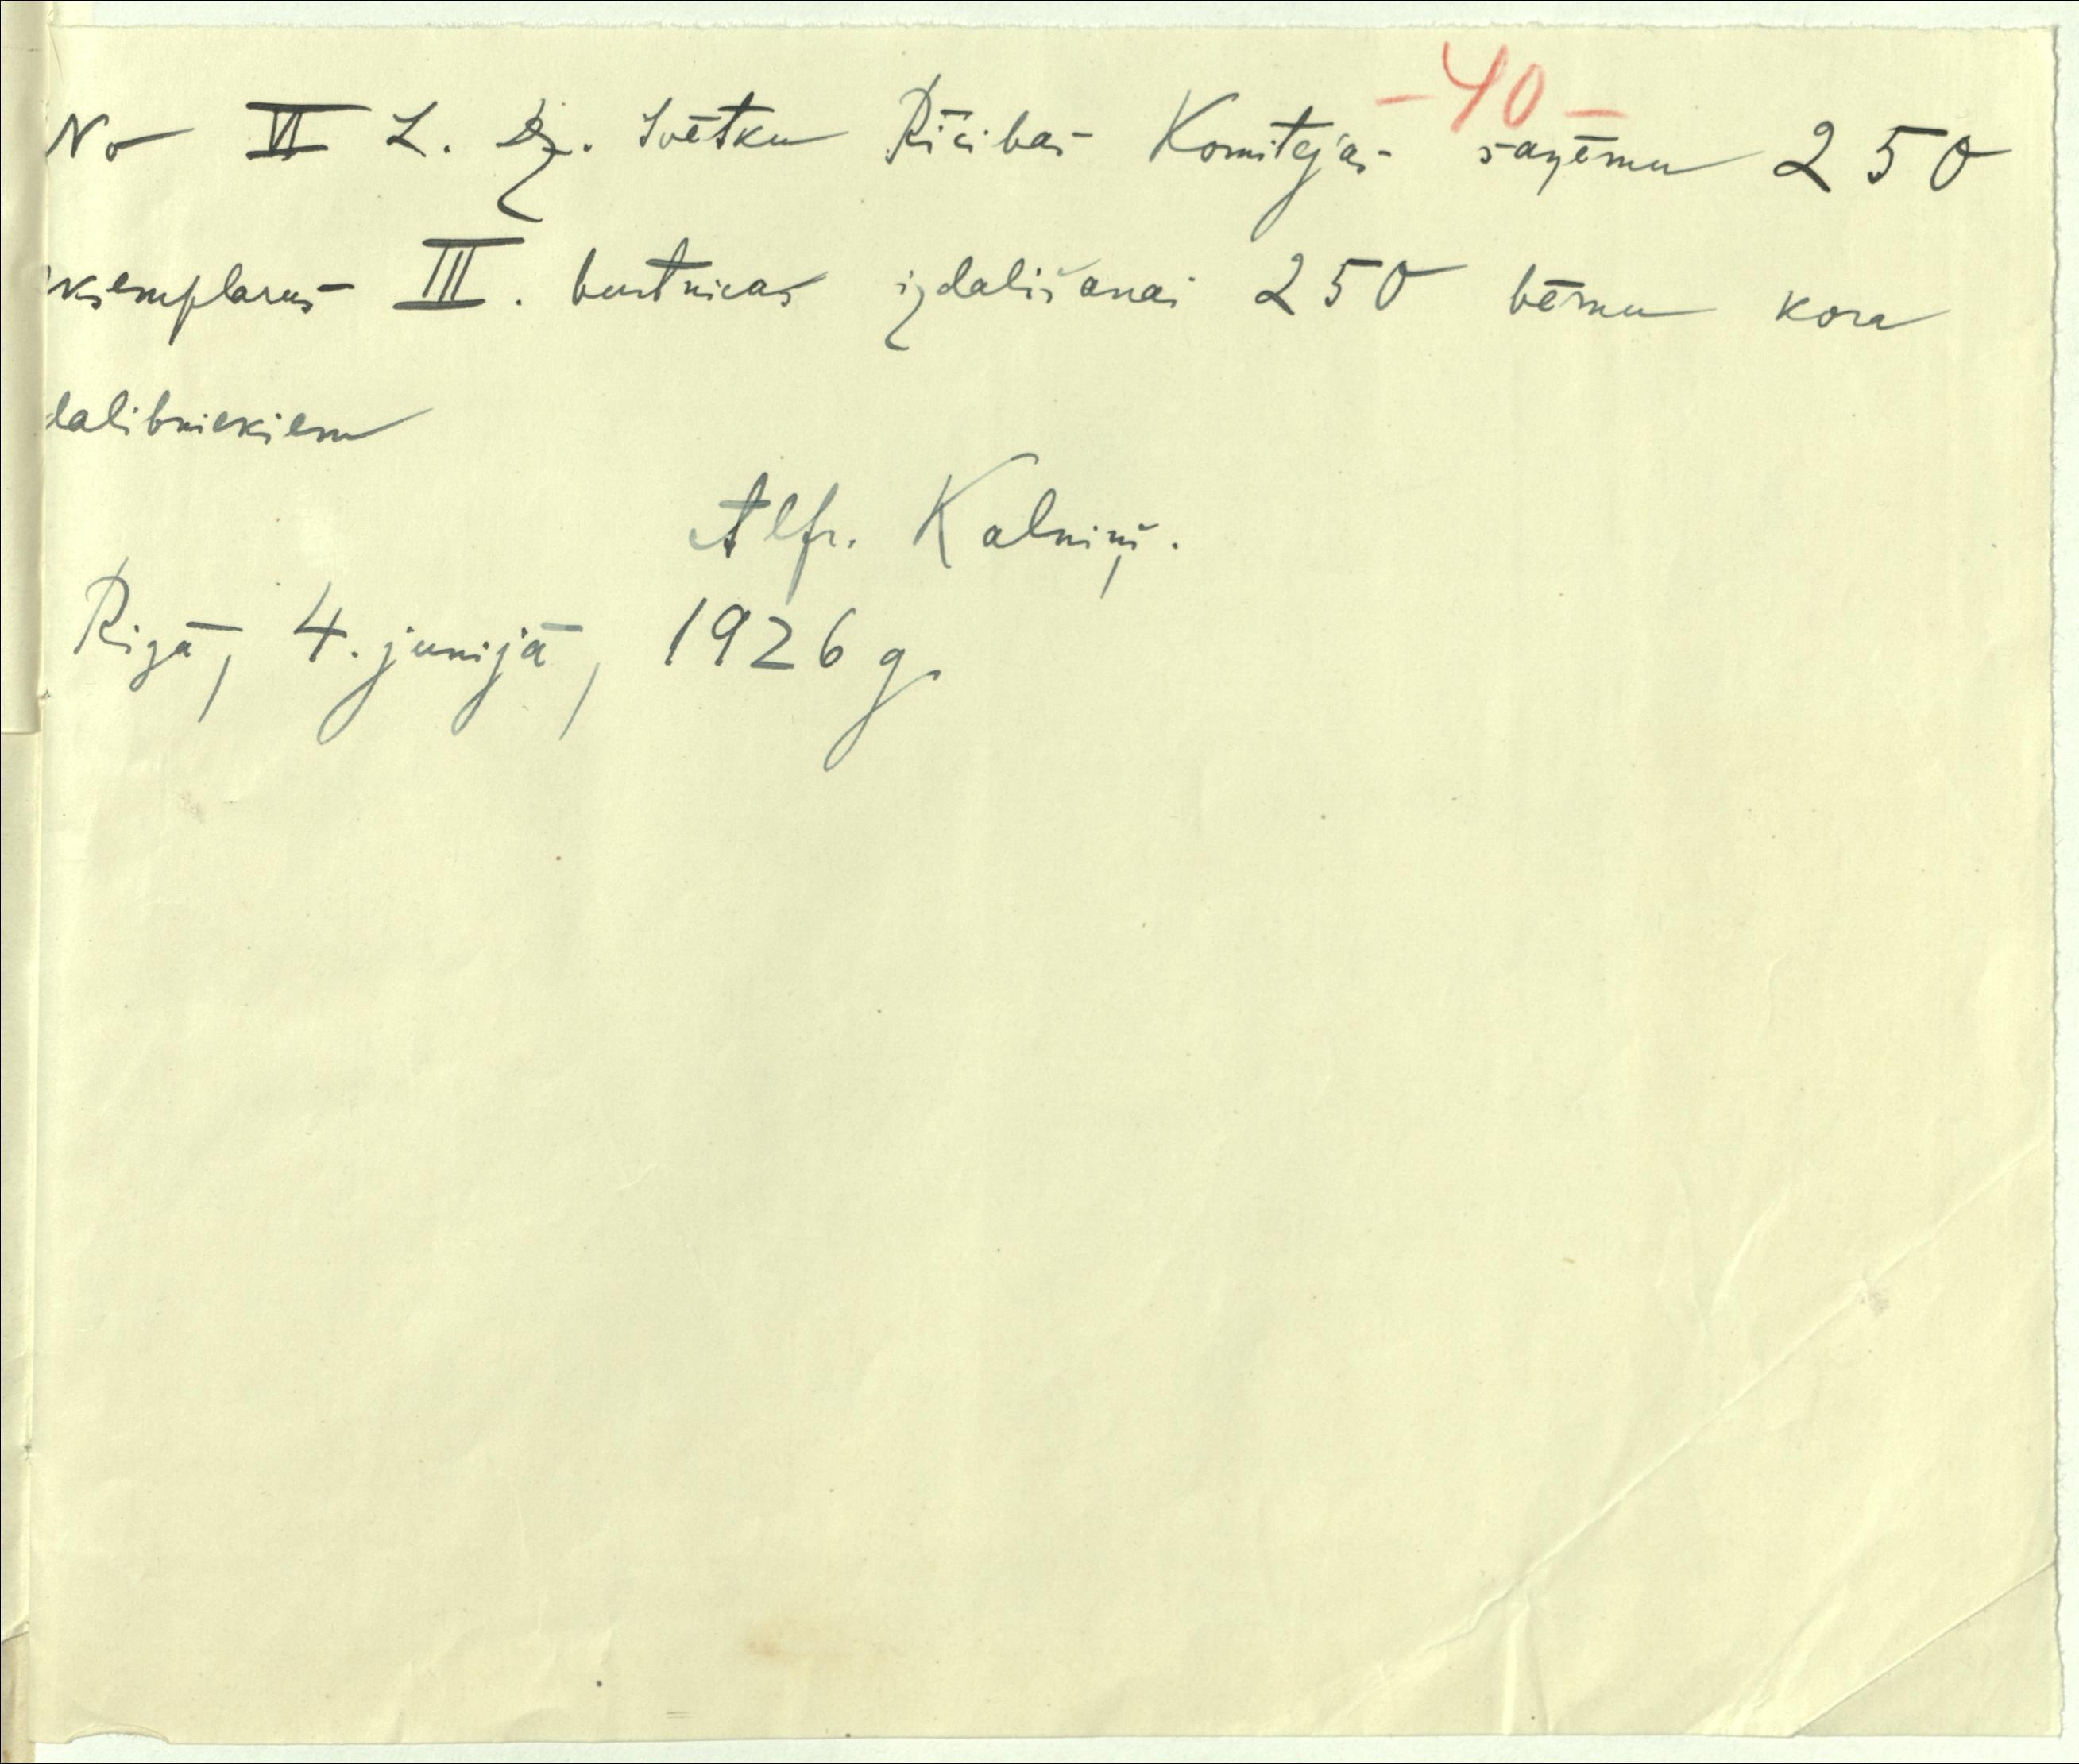 - 40 -
No VI L. Dz. Svētku Rīcibas Komitejas saņēmu 250
ksemplarus III. burtnicas izdališanai 250 bērnu kora
dalibniekiem
Alfr. Kalniņš.
Rigā, 4. junijā, 1926 g.